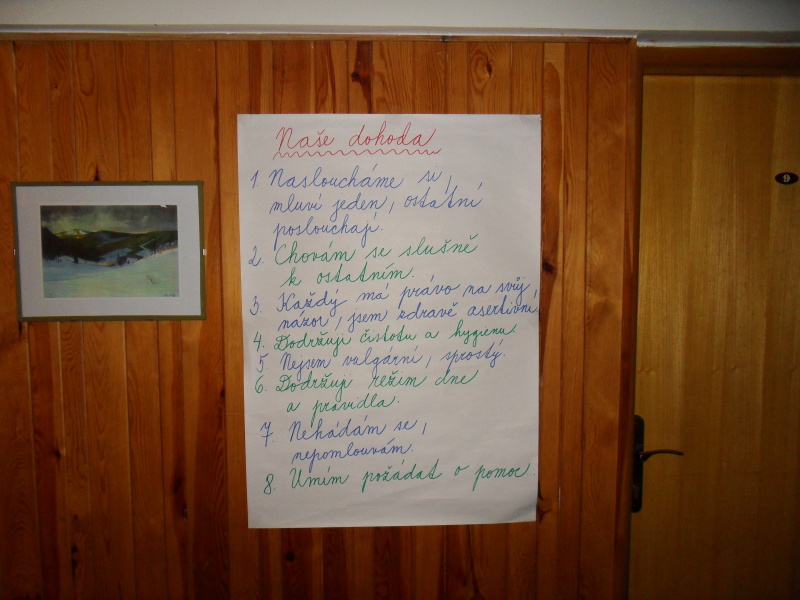 Naše dohoda
1. Nasloucháme si,
mluví jeden, ostatní
poslouchají.
2. Chovám se slušně
k ostatním.
3. Každý má právo na svůj
názor, jsem zdravě asertivní.
4. Dodržuji čistotu a hygienu.
5. Nejsem vulgární, sprostý.
6. Dodržuji režim dne
a pravidla.
7. Nehádám se,
nepomlouvám.
8. Umím požádat o pomoc
9